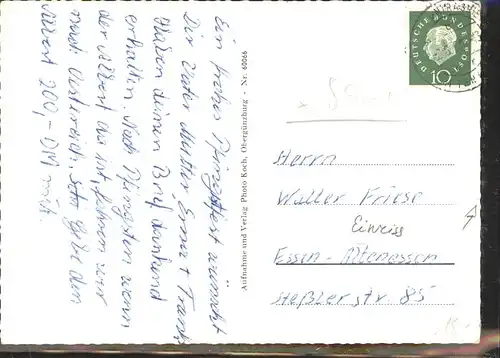 Ein frohes Pfingstfest wünscht
Dir Vater Mutter Erna + Traudl
Haben deinen Brief dankend
erhalten. Nach Pfingsten wenn
der Albert da ist fahren wir
nach Österreich. Ich gebe den
Albert 200,- DM mit
Aufnahme und Verlag Photo Koch, Obergünzburg - Nr. 60066
DEUTSCHE BUNDESPOST
10
Herrn
Walter Friese
Einweiss
Essen-Altenessen
Heßlerstr. 85